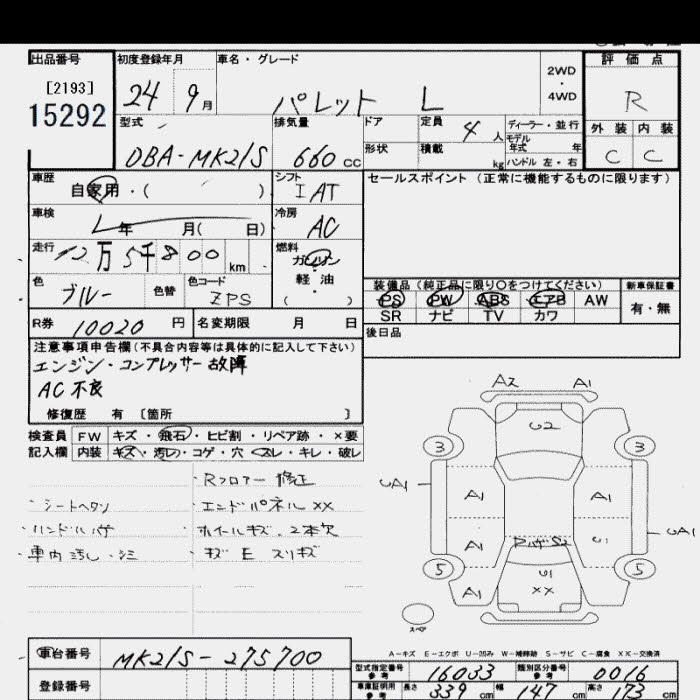 出品番号 初度登録年月 車名・グレード 評価点
[2193] 24 9月 パレット L 2WD・4WD R
15292
型式 排気量 ドア 定員 4人 ディーラー・並行 外装 内装
DBA-MK21S 660cc 形状 積載 kg モデル年式 年 ハンドル 左・右 C C
車歴 自家用・( ) シフト IAT セールスポイント (正常に機能するものに限ります)
車検 年 月( 日) 冷房 AC
走行 12万5千800km 燃料 ガソリン・軽油・( )
色 ブルー 色替 色コード ZPS 装備品 (純正品に限り○をつけてください) 新車保証書
PS PW ABS エアB AW 有・無
SR ナビ TV カワ
R券 10020円 名変期限 月 日 後日品
注意事項申告欄(不具合内容等は具体的に記入して下さい)
エンジン・コンプレッサー故障
AC不良
修復歴 有 〔箇所 〕
検査員 FW キズ・飛石・ヒビ割・リペア跡・×要
記入欄 内装 キズ・汚レ・コゲ・穴・スレ・キレ・破レ
・Rフロアー修正
・シートヘタリ ・エンドパネルXX
・ハンドルハゲ ・ホイールキズ.2本欠
・車内汚し・シミ ・キズ E スリキズ
A2 A1
G2
3 3
UA1 A1 A1
UA1
A1
5 5
A1 XX
スペア
A-キズ E-エクボ U-凹み W-補修跡 S-サビ C-腐食 XX-交換済
車台番号 MK21S-275700 型式指定番号 参考 16033 類別区分番号 参考 0016
登録番号 車庫証明用 参考 長さ 339cm 幅 147cm 高さ 173cm